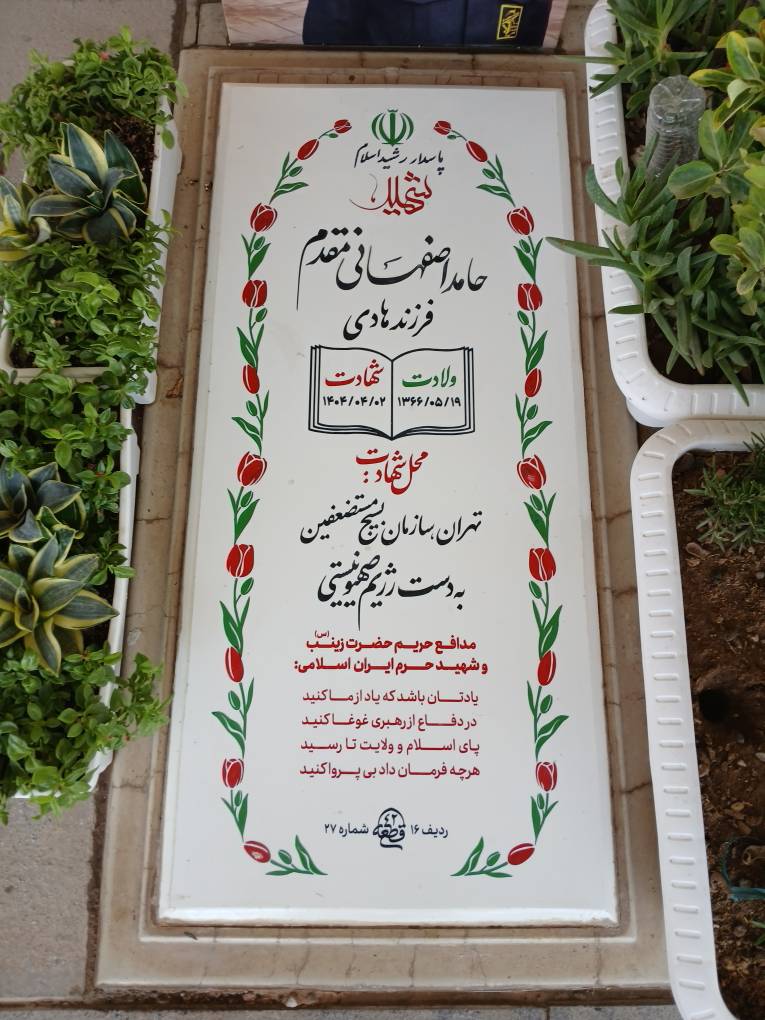 پاسدار رشید اسلام
شهید
حامد اصفهانی مقدم
فرزند هادی
ولادت شهادت
۱۳۶۶/۰۵/۱۹ ۱۴۰۴/۰۴/۰۲
محل شهادت:
تهران، سازمان بسیج مستضعفین
به دست رژیم صهیونیستی
مدافع حریم حضرت زینب (س)
و شهید حرم ایران اسلامی:
یادتان باشد که یاد از ما کنید
در دفاع از رهبری غوغا کنید
پای اسلام و ولایت تا رسید
هرچه فرمان داد بی پروا کنید
ردیف ۱۶ قطعه ۴۲ شماره ۲۷